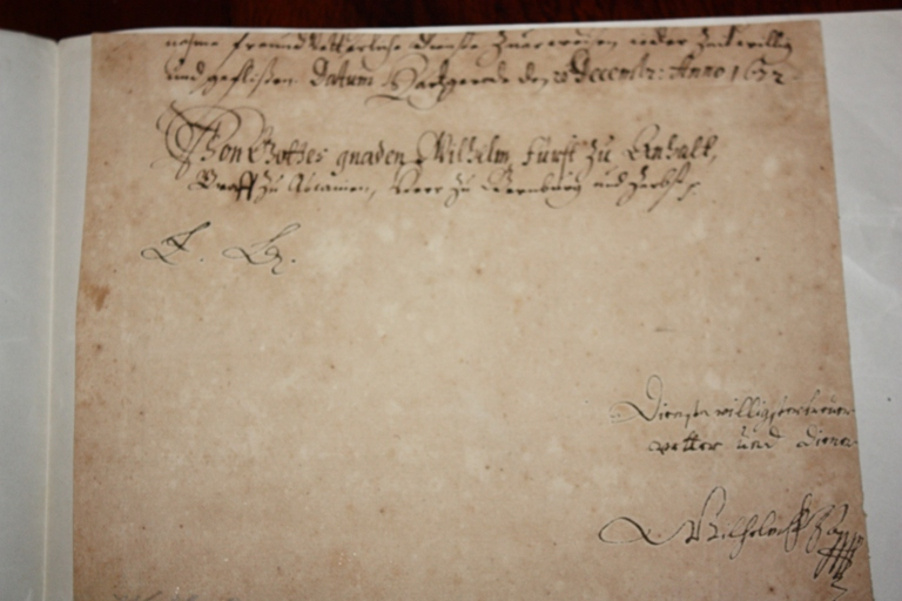 nahme freundvetterliche dienste Zuerweisen ieder Zeit willig
und geflißen. Datum Hartzgerode den Decembr: Anno 1672
Von Gottes gnaden Wilhelm, Fürst zu Anhalt,
Graff zu Ascanien, Herr zu Bernburg und Zerbst p.
E. L.
Dienstwilligster
vetter und diener
Wilhelm F Z A